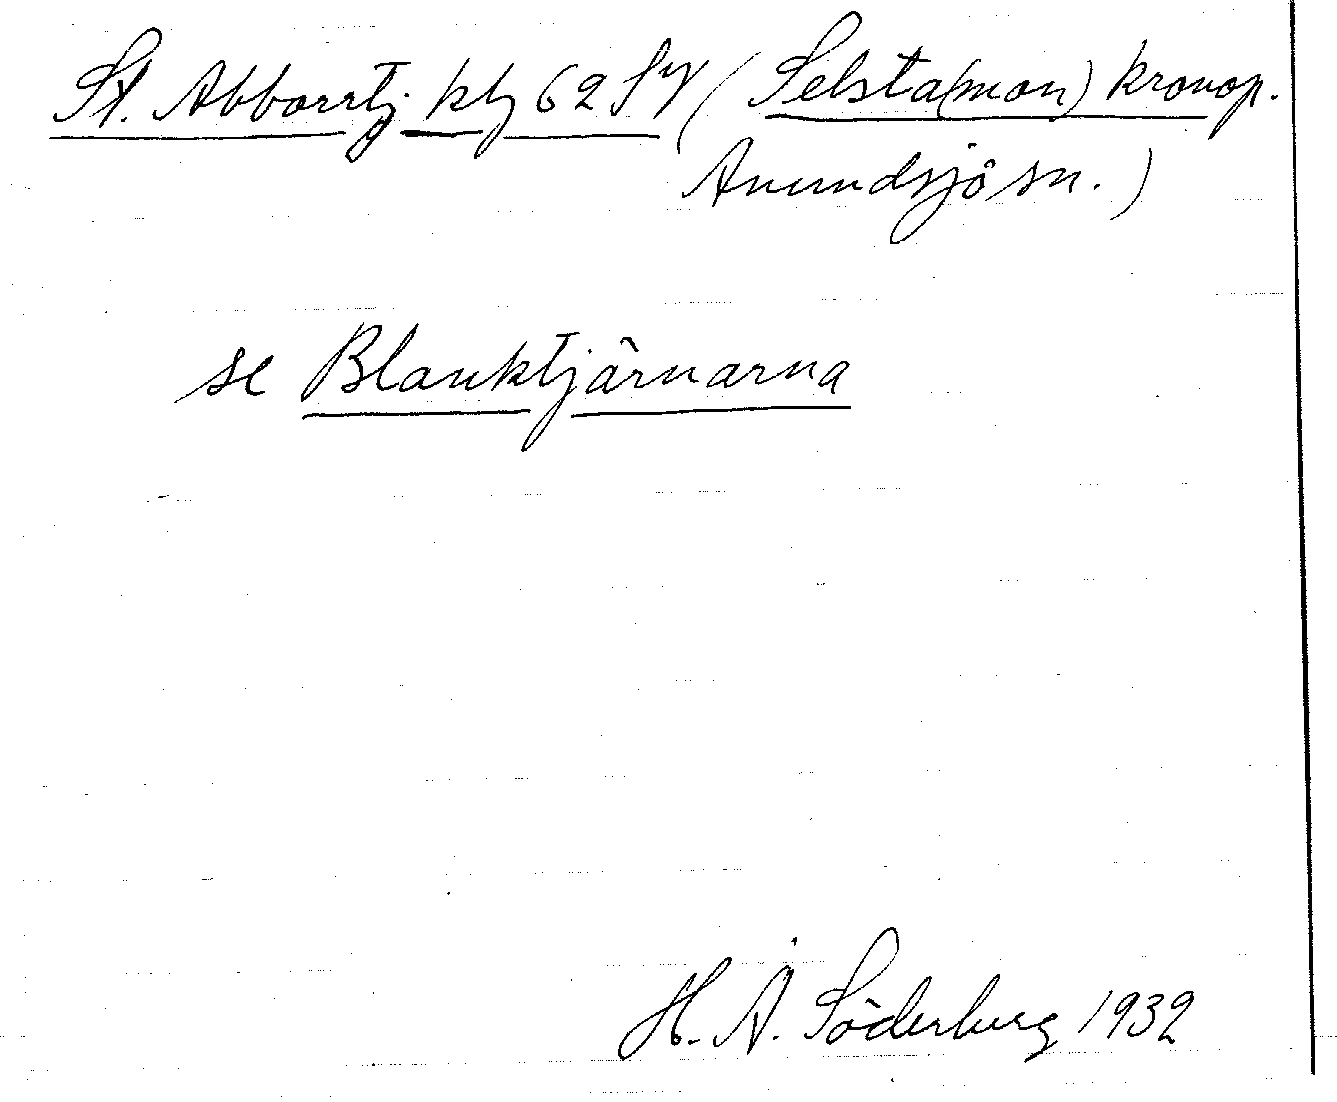 St. Abborrtj. ktj 62 SV (Selsta(mon) kronop.
Anundsjö sn.)
se Blanktjärnarna
H. Å. Söderberg 1932